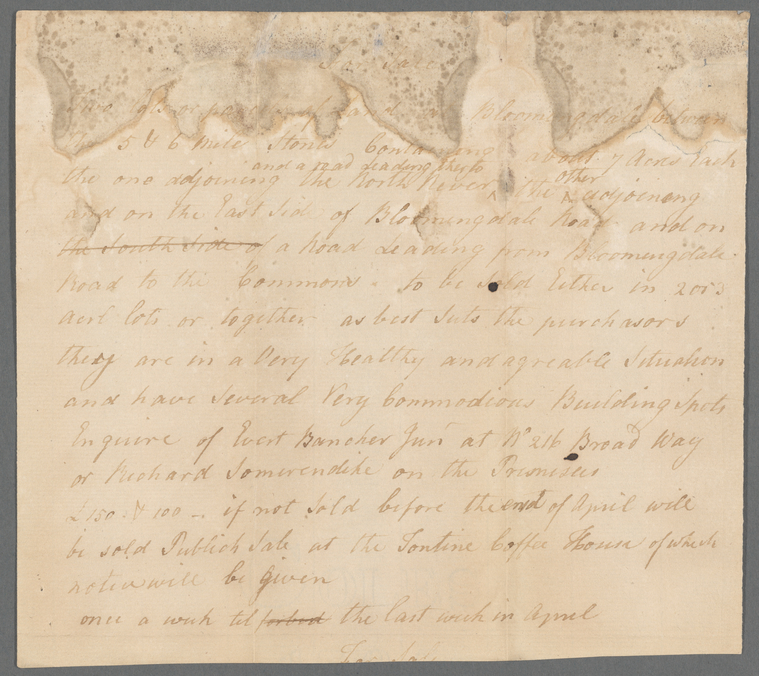 For Sale
Two lots or parcels of land at Bloomingdale between
the 5 & 6 mile Stones Containing about 7 Acres Each
and a road leading therto other
the one adjoining the North River, the adjoining
and on the East Side of Bloomingdale Road and on
the South Side of a Road Leading from Bloomingdale
Road to the Commons. to be Sold Either in 2 or 3
acre lots or together as best Suts the purchasors
they are in a Very Healthy and agreable Situation
and have Several Very Commodious Building Spots
Enquire of Evert Bancker Junr at No 216 Broad Way
or Richard Somerendike on the Premises
£150 & 100 - if not Sold before the end of April will
be sold Publick Sale at the Tontine Coffee House of which
notice will be given
once a week til forbed the last week in April
For Sale